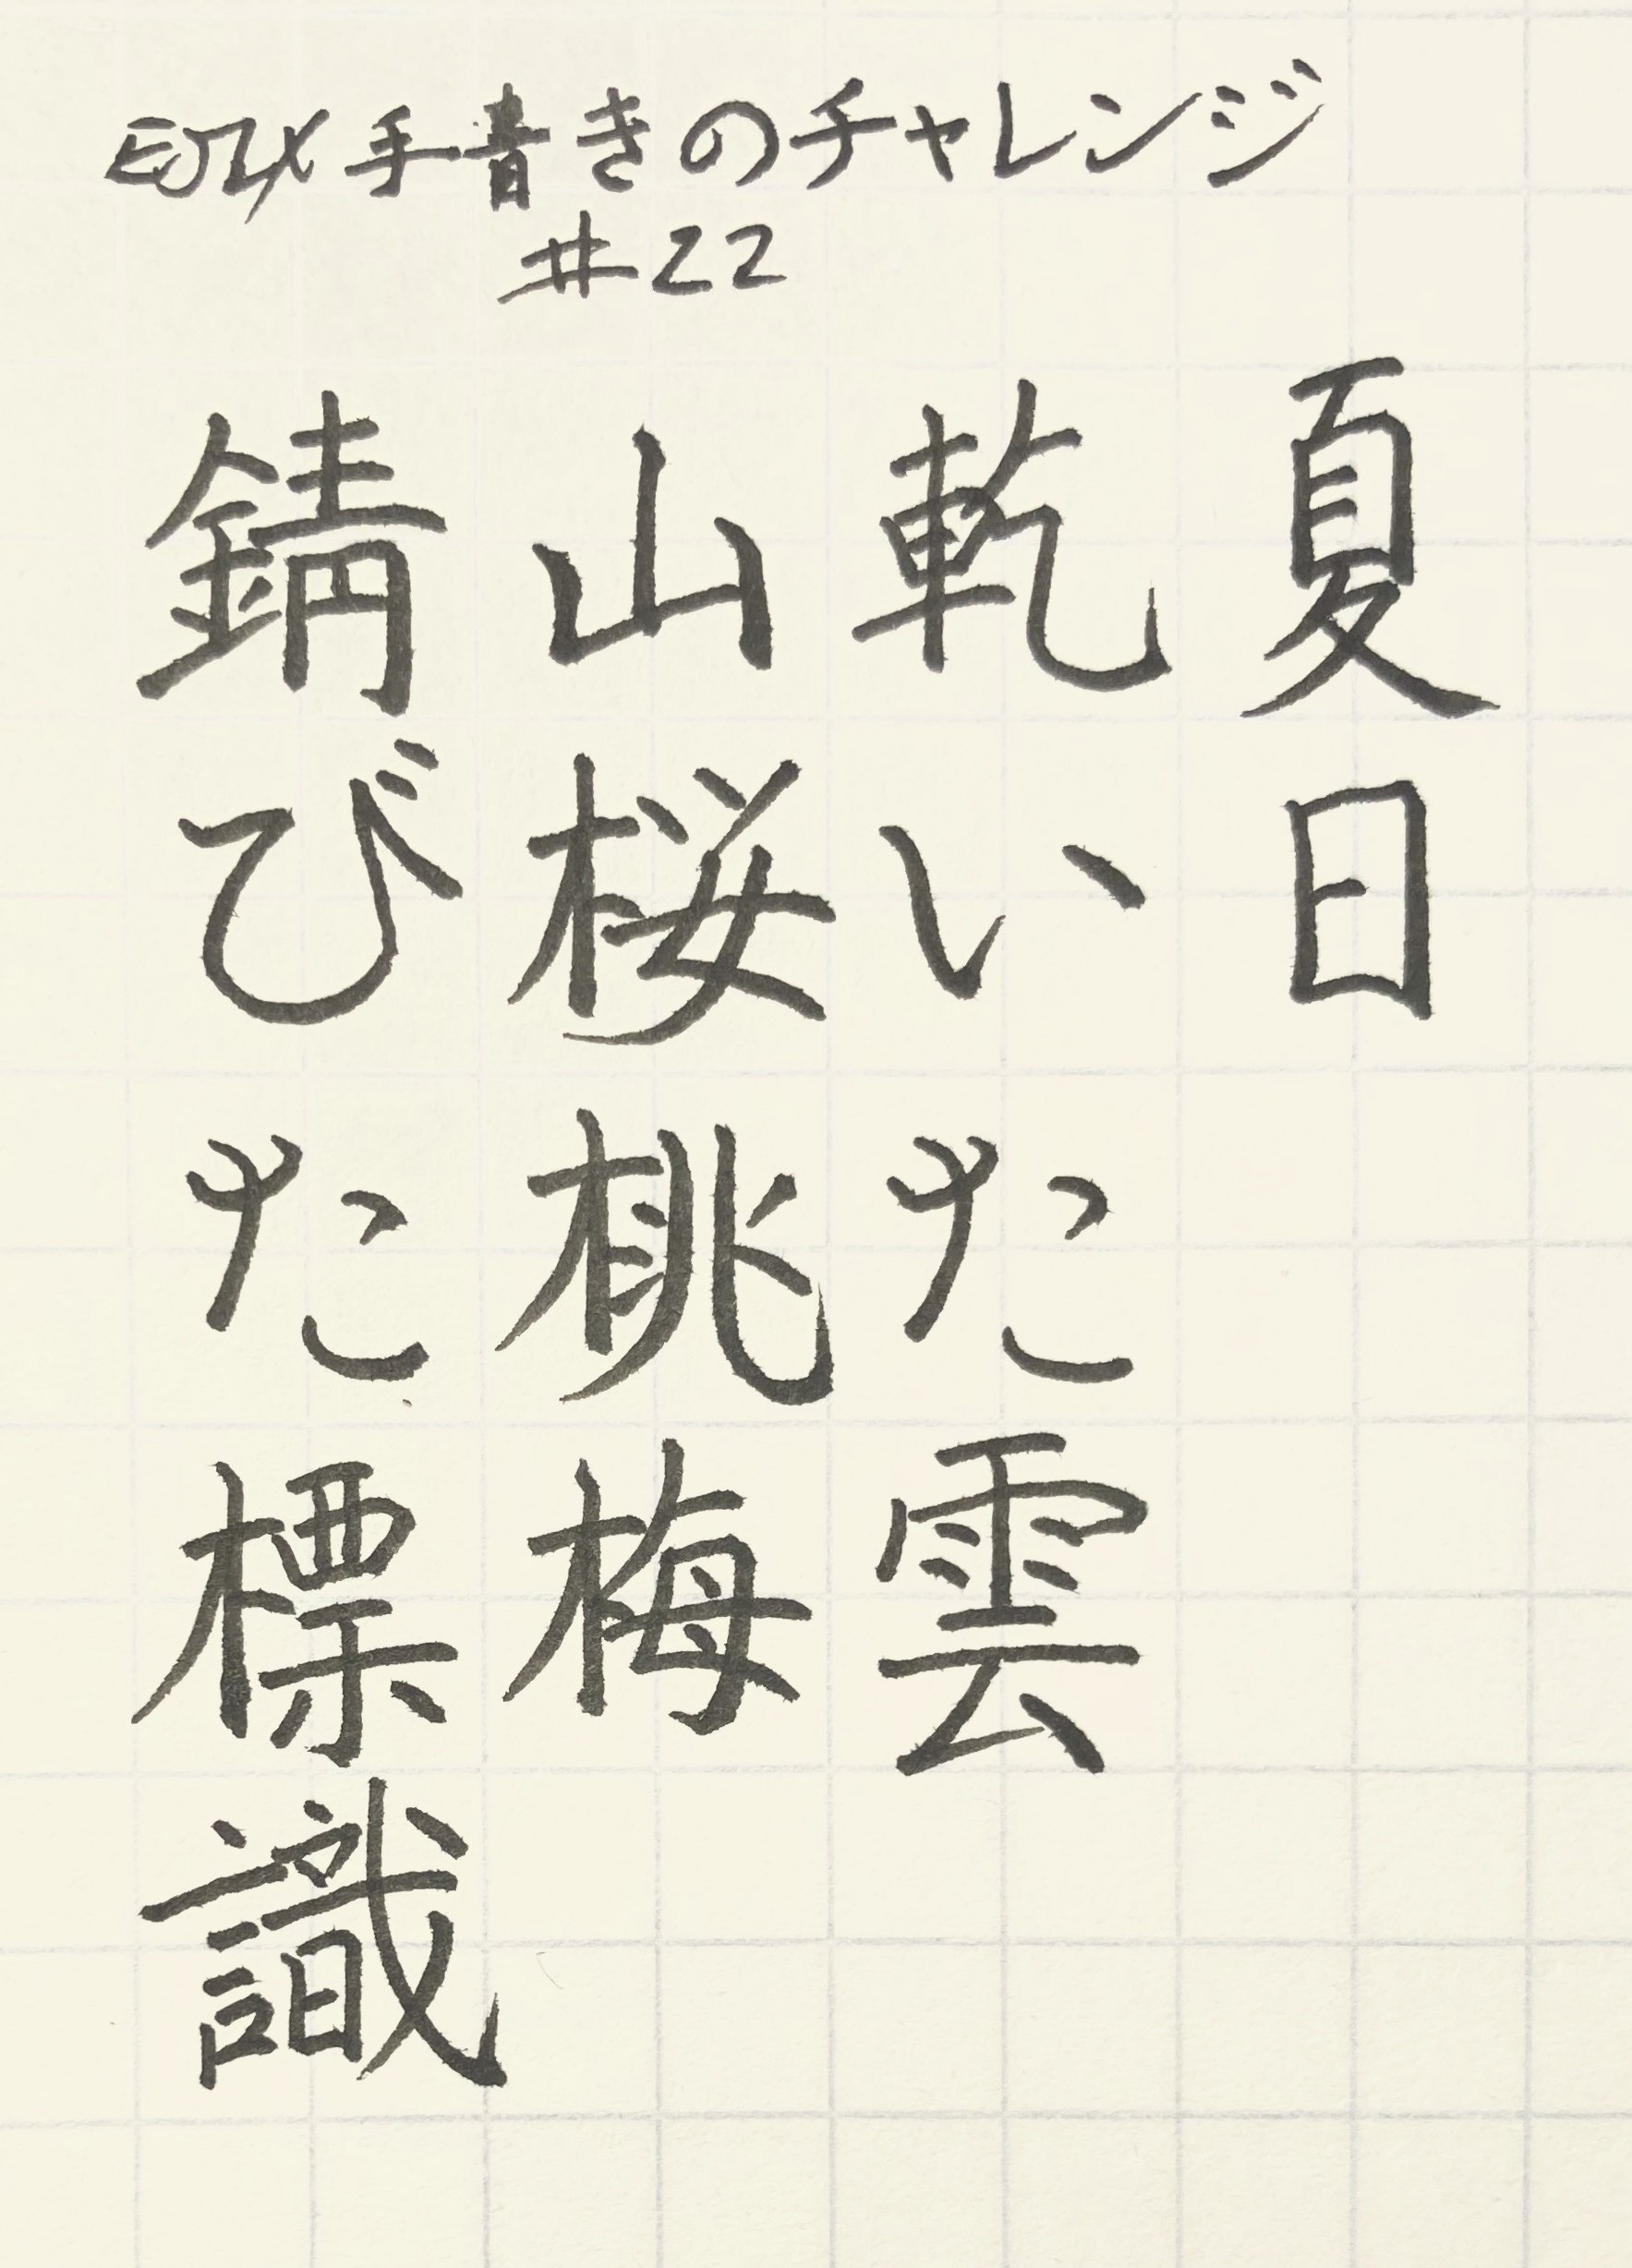 EJLX 手書きのチャレンジ
#22
夏日
乾いた雲
山桜桃梅
錆びた標識